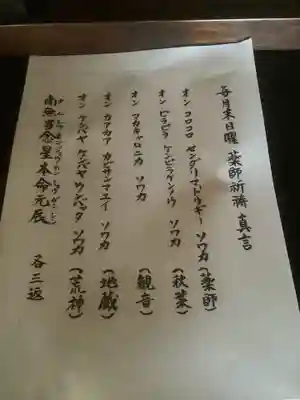 毎月末日曜 薬師祈祷 真言
オン コロコロ センダリマトウギー ソワカ (薬師)
オン ビラビラ ケンビラケンノウ ソワカ (秋葉)
オン アカキャロニカ ソワカ (観音)
オン カアカア カビサンマエイ ソワカ (地蔵)
オン ケンバヤ ケンバヤ ウンバッタ ソワカ (荒神)
南無当念星本命元辰 各三返